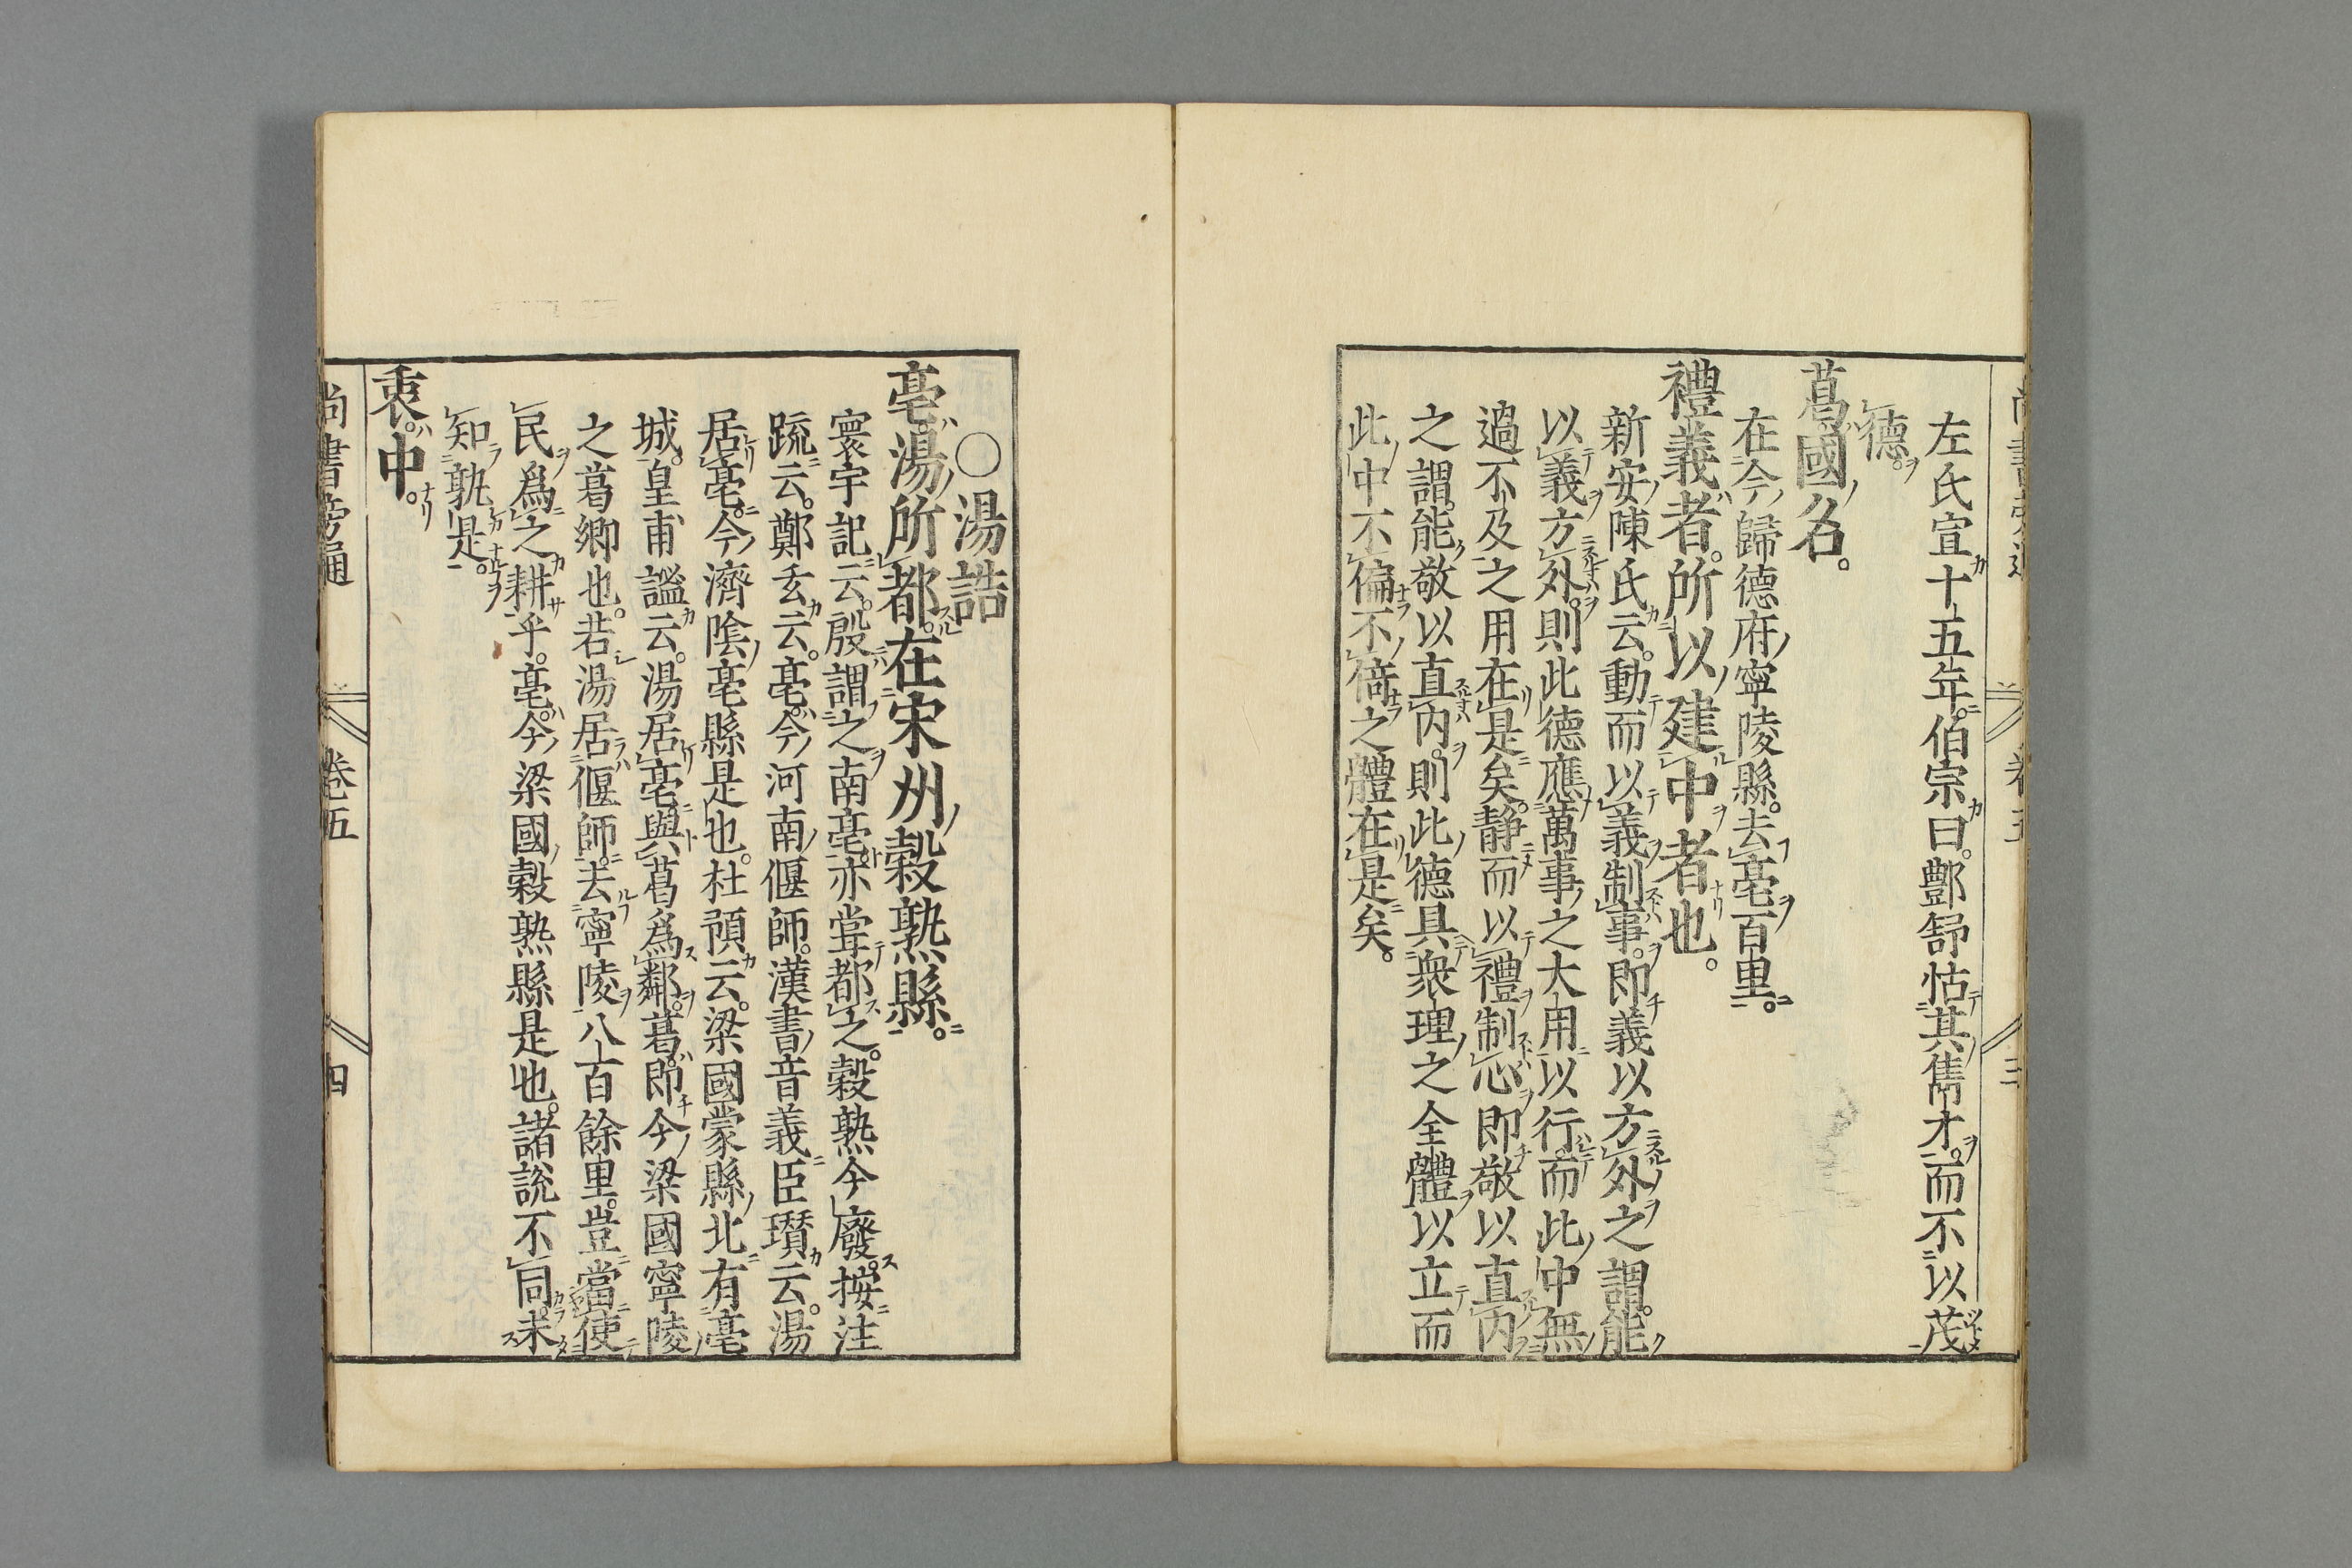 左氏宣十五年伯宗曰酆舒怙其雋才而不以茂
德
葛國名
在今歸德府寧陵縣去亳百里
禮義者所以建中者也
新安陳氏云動而以義制事即義以方外之謂能
以義方外則此德應萬事之大用以行而此中無
過不及之用在是矣静而以禮制心即敬以直内
之謂能敬以直内則此德具衆理之全體以立而
此中不偏不倚之體在是矣
○湯誥
亳湯所都在宋州穀熟縣
寰宇記云殷謂之南亳亦嘗都之穀熟今廢按注
䟽云鄭玄云亳今河南偃師漢書音義臣瓚云湯
居亳今濟陰亳縣是也杜預云梁國蒙縣北有亳
城皇甫謐云湯居亳與葛爲鄰葛即今梁國寧陵
之葛鄉也若湯居偃師去寧陵八百餘里豈當使
民爲之耕乎亳今梁國穀熟縣是也諸說不同未
知孰是
衷中
尚書旁通 卷五 四